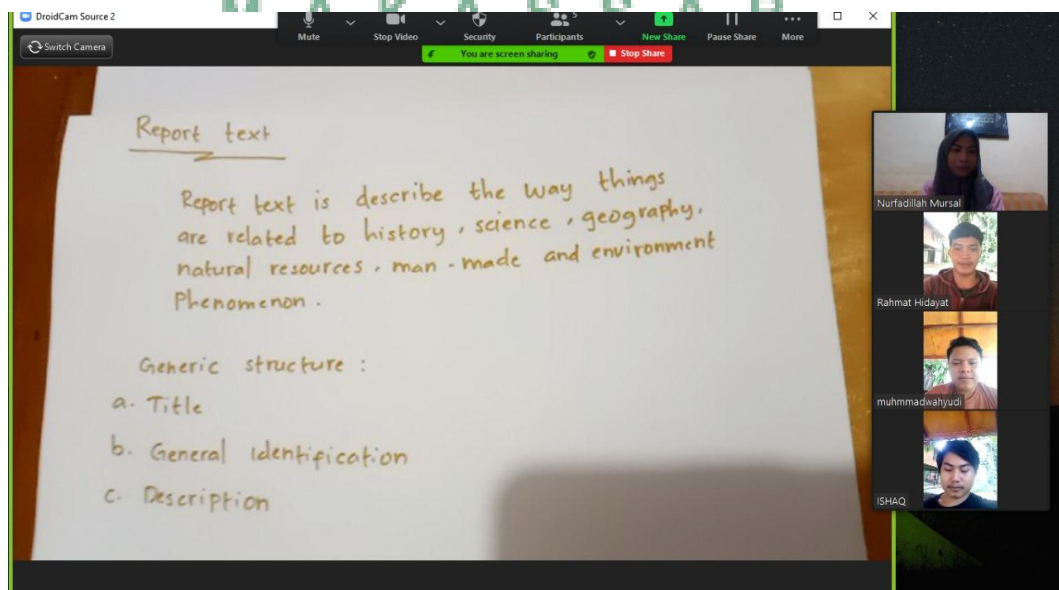 DroidCam Source 2
Switch Camera
Mute
Stop Video
Security
Participants
5
New Share
Pause Share
More
You are screen sharing
Stop Share
Report text
Report text is describe the way things
are related to history, science, geography,
natural resources, man-made and environment
Phenomenon.
Generic structure :
a. Title
b. General identification
c. Description
Nurfadillah Mursal
Rahmat Hidayat
muhmmadwahyudi
ISHAQ